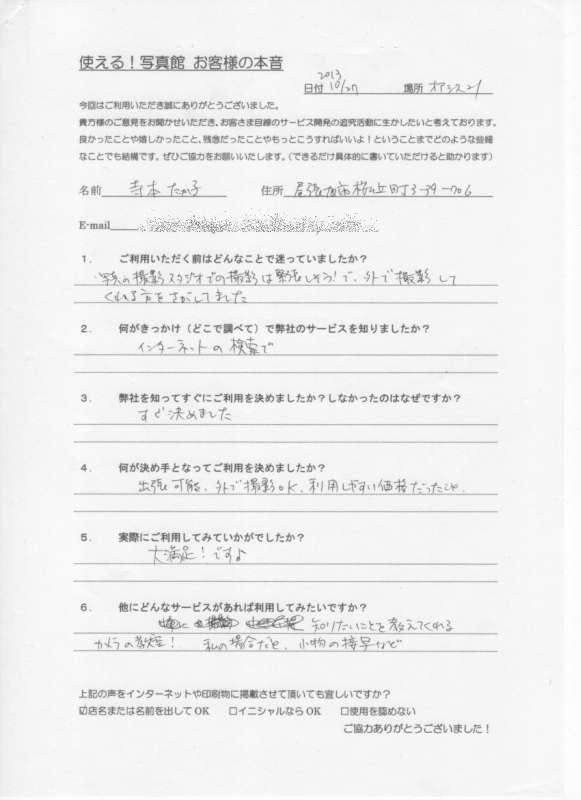 使える！写真館 お客様の本音
2013
日付 10/27 場所 オアシス21
今回はご利用いただき誠にありがとうございました。
貴方様のご意見をお聞かせいただき、お客さま目線のサービス開発の追究活動に生かしたいと考えております。
良かったことや嬉しかったこと、残念だったことやもっとこうすればいいよ！ということまでどのような些細
なことでも結構です。ぜひご協力をお願いいたします。（できるだけ具体的に書いていただけると助かります）
名前 寺本 たか子 住所 尾張旭市桜丘町3-39-706
E-mail
１． ご利用いただく前はどんなことで迷っていましたか？
写真の撮影スタジオでの撮影は緊張しそう！で、外で撮影して
くれる方をさがしてました
２． 何がきっかけ（どこで調べて）で弊社のサービスを知りましたか？
インターネットの検索で
３． 弊社を知ってすぐにご利用を決めましたか？しなかったのはなぜですか？
すぐ決めました
４． 何が決め手となってご利用を決めましたか？
出張可能、外で撮影OK、利用しやすい価格だったこと、
５． 実際にご利用してみていかがでしたか？
大満足！ですよ
６． 他にどんなサービスがあれば利用してみたいですか？
知りたいことを教えてくれる
カメラの教室！ 私の場合だと、小物の接写など
上記の声をインターネットや印刷物に掲載させて頂いても宜しいですか？
☑店名または名前を出して OK □イニシャルなら OK □使用を認めない
ご協力ありがとうございました！